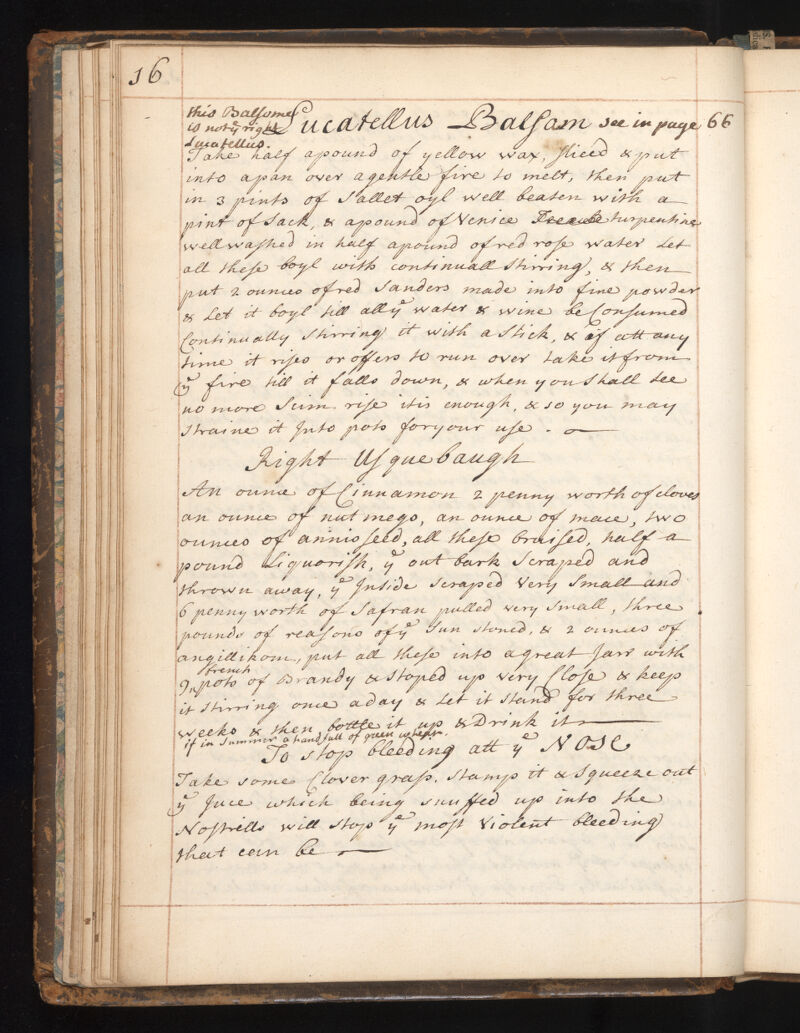 16
this Balsome
is not yͤ right
Lucatellus.
Lucatellus Balsam see in page 66
Take half a pound of yellow wax, sliced & put
into a pan over a gentle fire to melt, then put
in 3 pints of sallet oyl well beaten with a
pint of sack, & a pound of Venice turpentine
well washed in half a pound of red rose water Let
all these boyl with continuall stirring, & then
put 2 ounces of red Sanders made into fine powder
& Let it boyl till all yͤ water & wine be Consumed
Continually stirring it with a stick, & if att any
time it rises or offers to run over take it from
yͤ fire till it falls down, & when you shall see
no more scim rise itis enough, & so you may
straine it Into pots for your use.
Right Usquebaugh
An ounce of Cinnamon 2 penny worth of cloves
an ounce of nutmegs, an ounce of mace, two
ounces of annisseed, all these bruised, half a
pound Liquorish, yͤ out bark scraped and
thrown away, yͤ Inside scraped very small and
6 penny worth of Safran pulled very small, three
pounds of reasons of yͤ sun stoned, & 2 ounces of
angillikom, put all these into a great Jarr with
9 french pots of Brandy & stoped up very Close & keep
it stirring once a day & Let it stand for three
weeks & then bottle it up & Drink it
if in summer a handfull of green
To stop bleeding att yͤ NOSE
Take some Clover grass, stamp it & squeeze out
yͤ Juce which being snuffed up into the
Nostrells will stop yͤ most violent bleeding
that can be